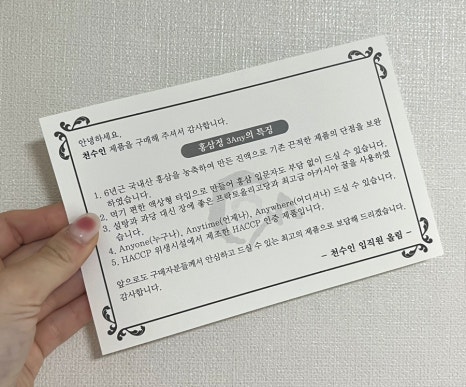 안녕하세요.
천수인 제품을 구매해 주셔서 감사합니다.
홍삼정 3Any의 특징
1. 6년근 국내산 홍삼을 농축하여 만든 진액으로 기존 끈적한 제품의 단점을 보완
하였습니다.
2. 먹기 편한 액상형 타입으로 만들어 홍삼 입문자도 부담 없이 드실 수 있습니다.
3. 설탕과 과당 대신 장에 좋은 프락토올리고당과 최고급 아카시아 꿀을 사용하였
습니다.
4. Anyone(누구나), Anytime(언제나), Anywhere(어디서나) 드실 수 있습니다.
5. HACCP 위생시설에서 제조한 HACCP 인증 제품입니다.
앞으로도 구매자분들께서 안심하고 드실 수 있는 최고의 제품으로 보답해 드리겠습니다.
감사합니다.
- 천수인 임직원 올림 -